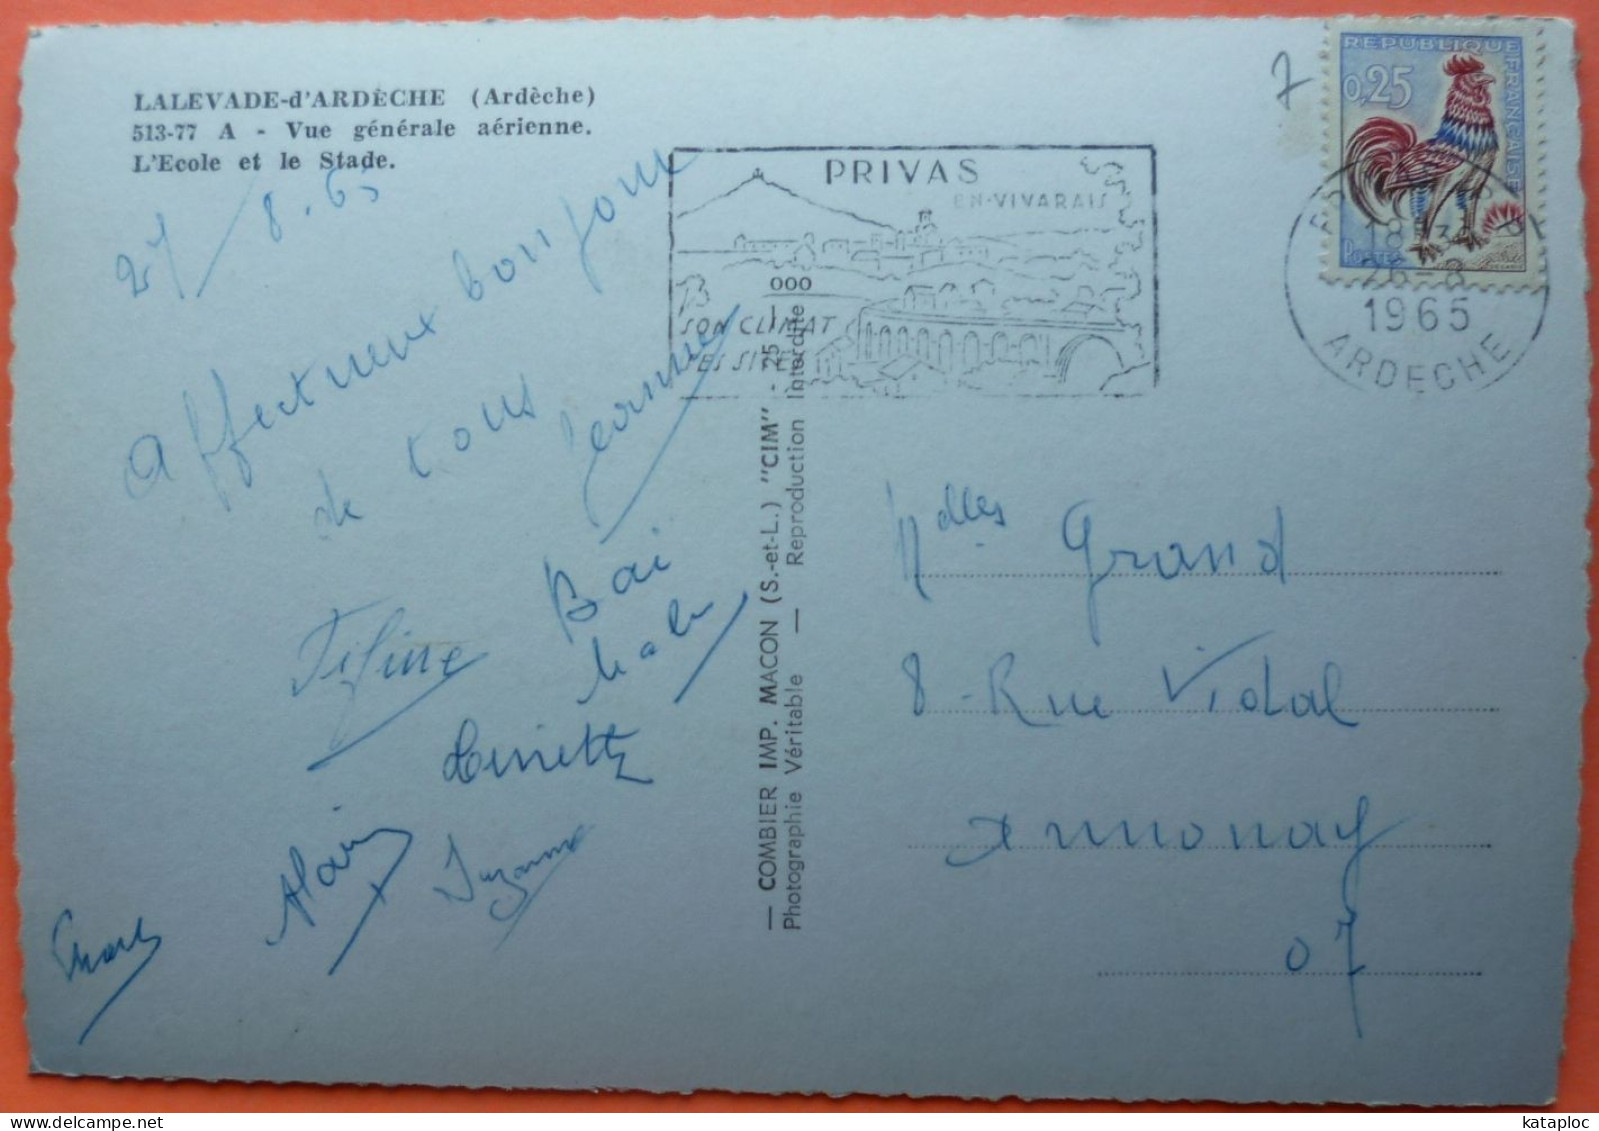 LALEVADE-d'ARDÈCHE (Ardèche)
513-77 A - Vue générale aérienne.
L'Ecole et le Stade.
27/8.65
Affectueux bonjour
de tous
Jeanne
Fifine
Alain
Suzanne
PRIVAS
EN-VIVARAIS
SON CLIMAT
SES SITES
— COMBIER IMP. MACON (S.-et-L.) "CIM"
Photographie Véritable — Reproduction Interdite
000
25
7
REPUBLIQUE FRANÇAISE
0,25
POSTES
18
26-8
1965
ARDECHE
Mdelles Grand
8 - Rue Vidal
Annonay
07
kataploc